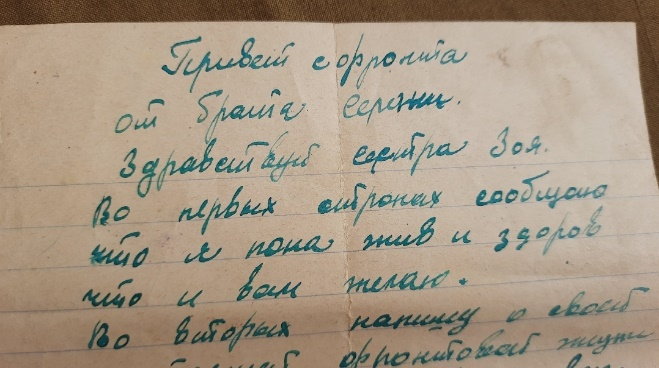 Привет с фронта
от брата Сергея.
Здравствуй сестра Зоя.
Во первых строках сообщаю
что я пока жив и здоров
что и вам желаю.
Во вторых напишу о своей
фронтовой жизни